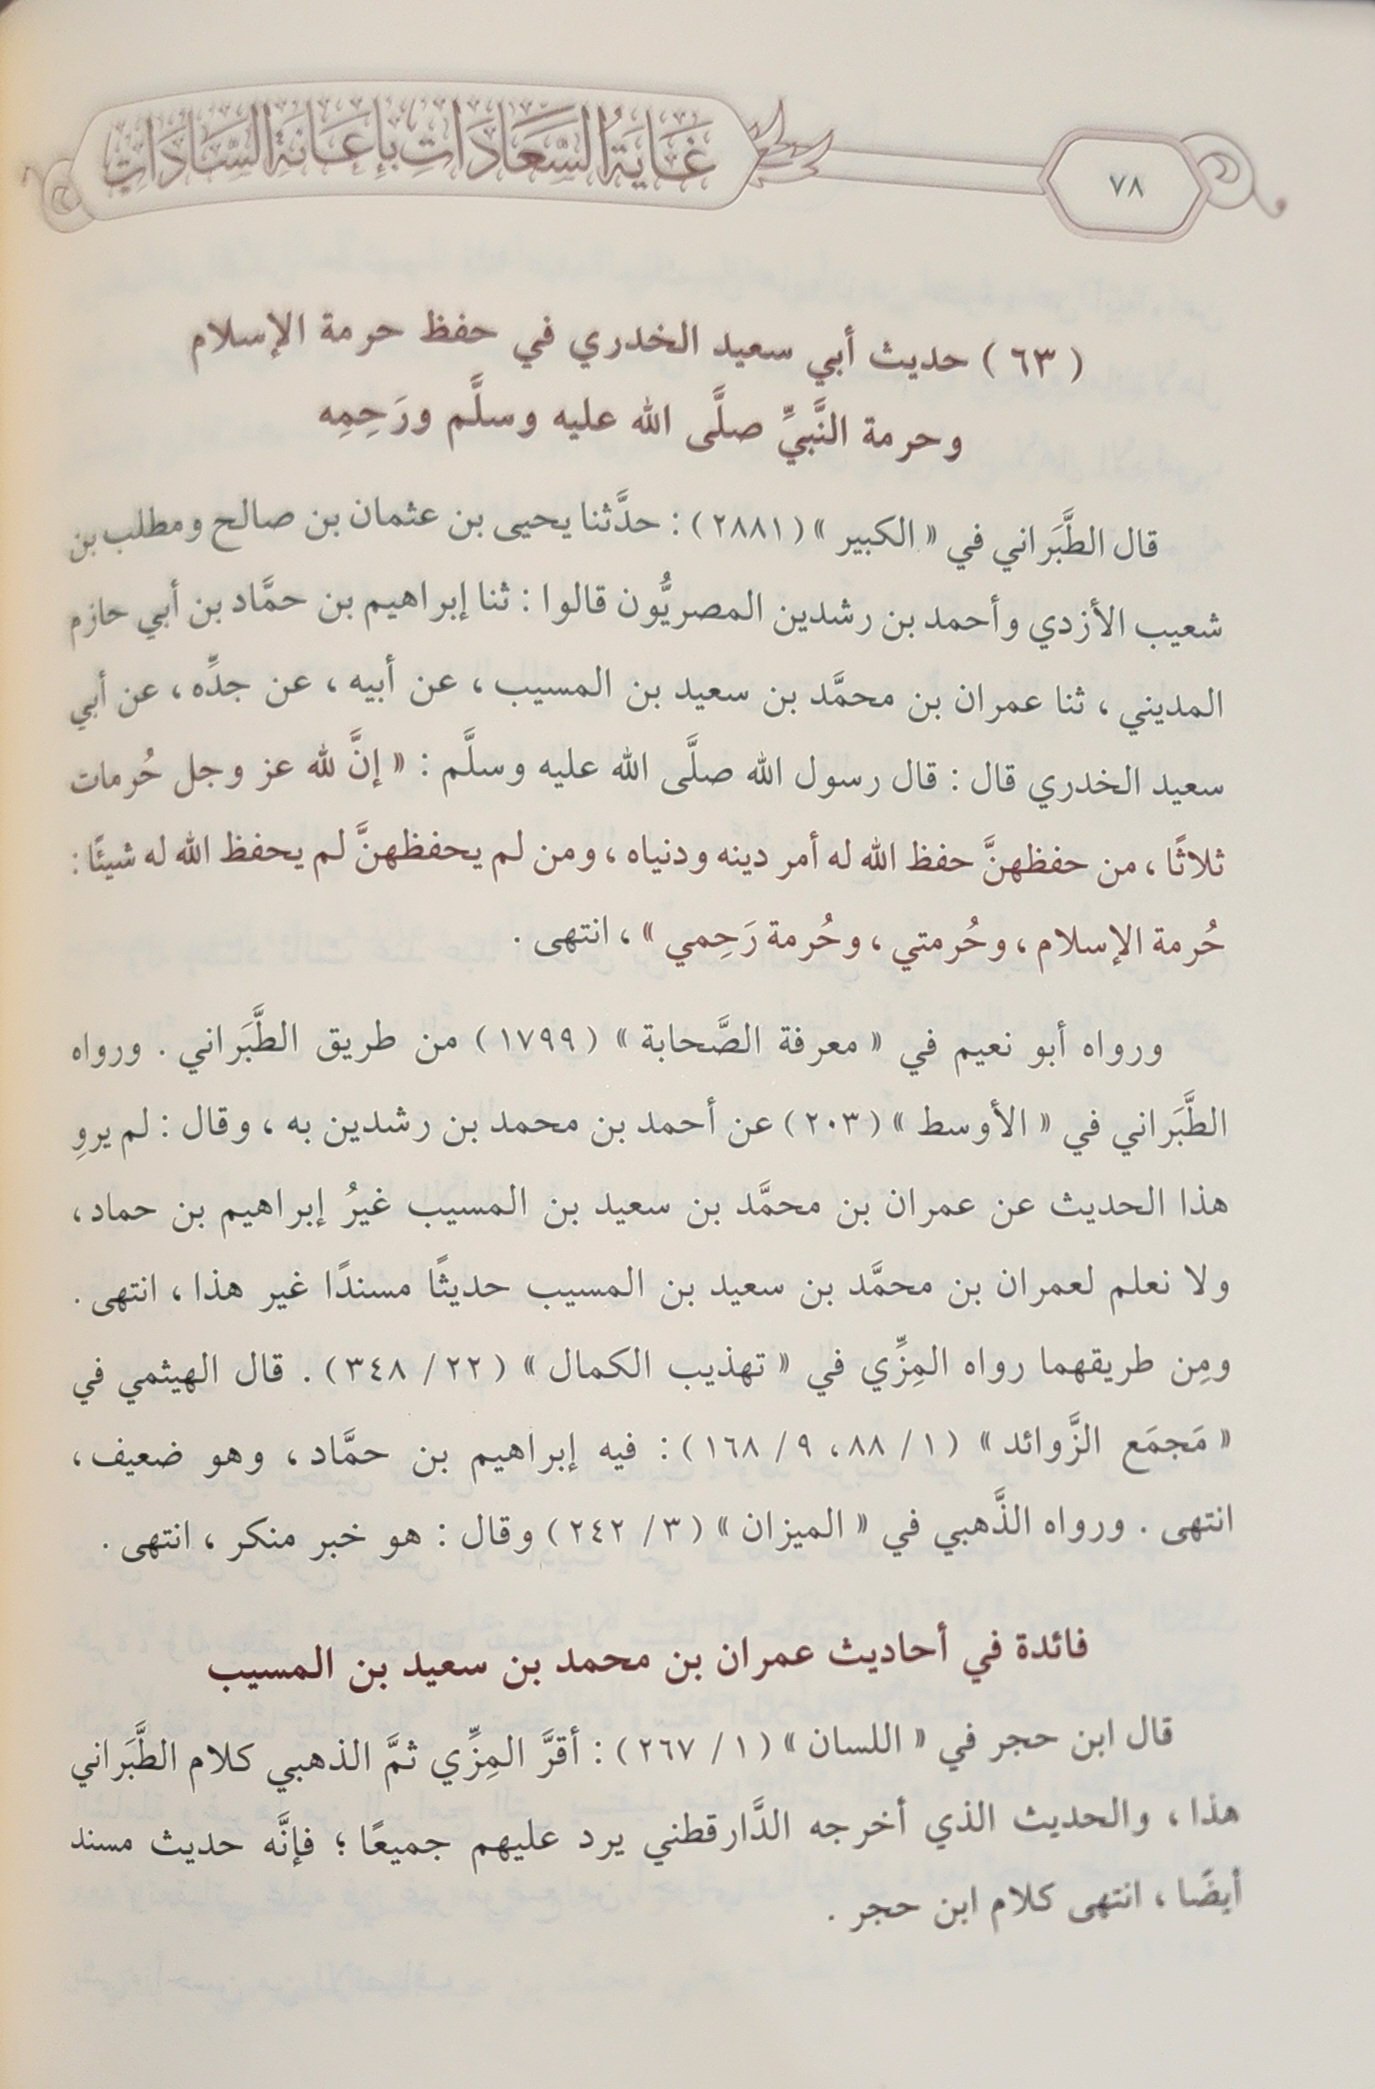 غَايَةُ السَّعَادَاتِ بِإِعَانَةِ السَّادَاتِ
٧٨
( ٦٣ ) حديث أبي سعيد الخدري في حفظ حرمة الإسلام
وحرمة النَّبيِّ صلَّى الله عليه وسلَّم ورَحِمِه
قال الطَّبَراني في « الكبير » ( ٢٨٨١ ) : حدَّثنا يحيى بن عثمان بن صالح ومطلب بن
شعيب الأزدي وأحمد بن رشدين المصريُّون قالوا : ثنا إبراهيم بن حمَّاد بن أبي حازم
المديني ، ثنا عمران بن محمَّد بن سعيد بن المسيب ، عن أبيه ، عن جدِّه ، عن أبي
سعيد الخدري قال : قال رسول الله صلَّى الله عليه وسلَّم : « إنَّ لله عز وجل حُرمات
ثلاثًا ، من حفظهنَّ حفظ الله له أمر دينه ودنياه ، ومن لم يحفظهنَّ لم يحفظ الله له شيئًا :
حُرمة الإسلام ، وحُرمتي ، وحُرمة رَحِمي » ، انتهى .
ورواه أبو نعيم في « معرفة الصَّحابة » ( ١٧٩٩ ) من طريق الطَّبَراني . ورواه
الطَّبَراني في « الأوسط » ( ٢٠٣ ) عن أحمد بن محمد بن رشدين به ، وقال : لم يروِ
هذا الحديث عن عمران بن محمَّد بن سعيد بن المسيب غيرُ إبراهيم بن حماد ،
ولا نعلم لعمران بن محمَّد بن سعيد بن المسيب حديثًا مسندًا غير هذا ، انتهى .
ومِن طريقهما رواه المِزِّي في « تهذيب الكمال » ( ٢٢ / ٣٤٨ ) . قال الهيثمي في
« مَجمَع الزَّوائد » ( ١ / ٨٨ ، ٩ / ١٦٨ ) : فيه إبراهيم بن حمَّاد ، وهو ضعيف ،
انتهى . ورواه الذَّهبي في « الميزان » ( ٣ / ٢٤٢ ) وقال : هو خبر منكر ، انتهى .
فائدة في أحاديث عمران بن محمد بن سعيد بن المسيب
قال ابن حجر في « اللسان » ( ١ / ٢٦٧ ) : أقرَّ المِزِّي ثمَّ الذهبي كلام الطَّبَراني
هذا ، والحديث الذي أخرجه الدَّارقطني يرد عليهم جميعًا ؛ فإنَّه حديث مسند
أيضًا ، انتهى كلام ابن حجر .